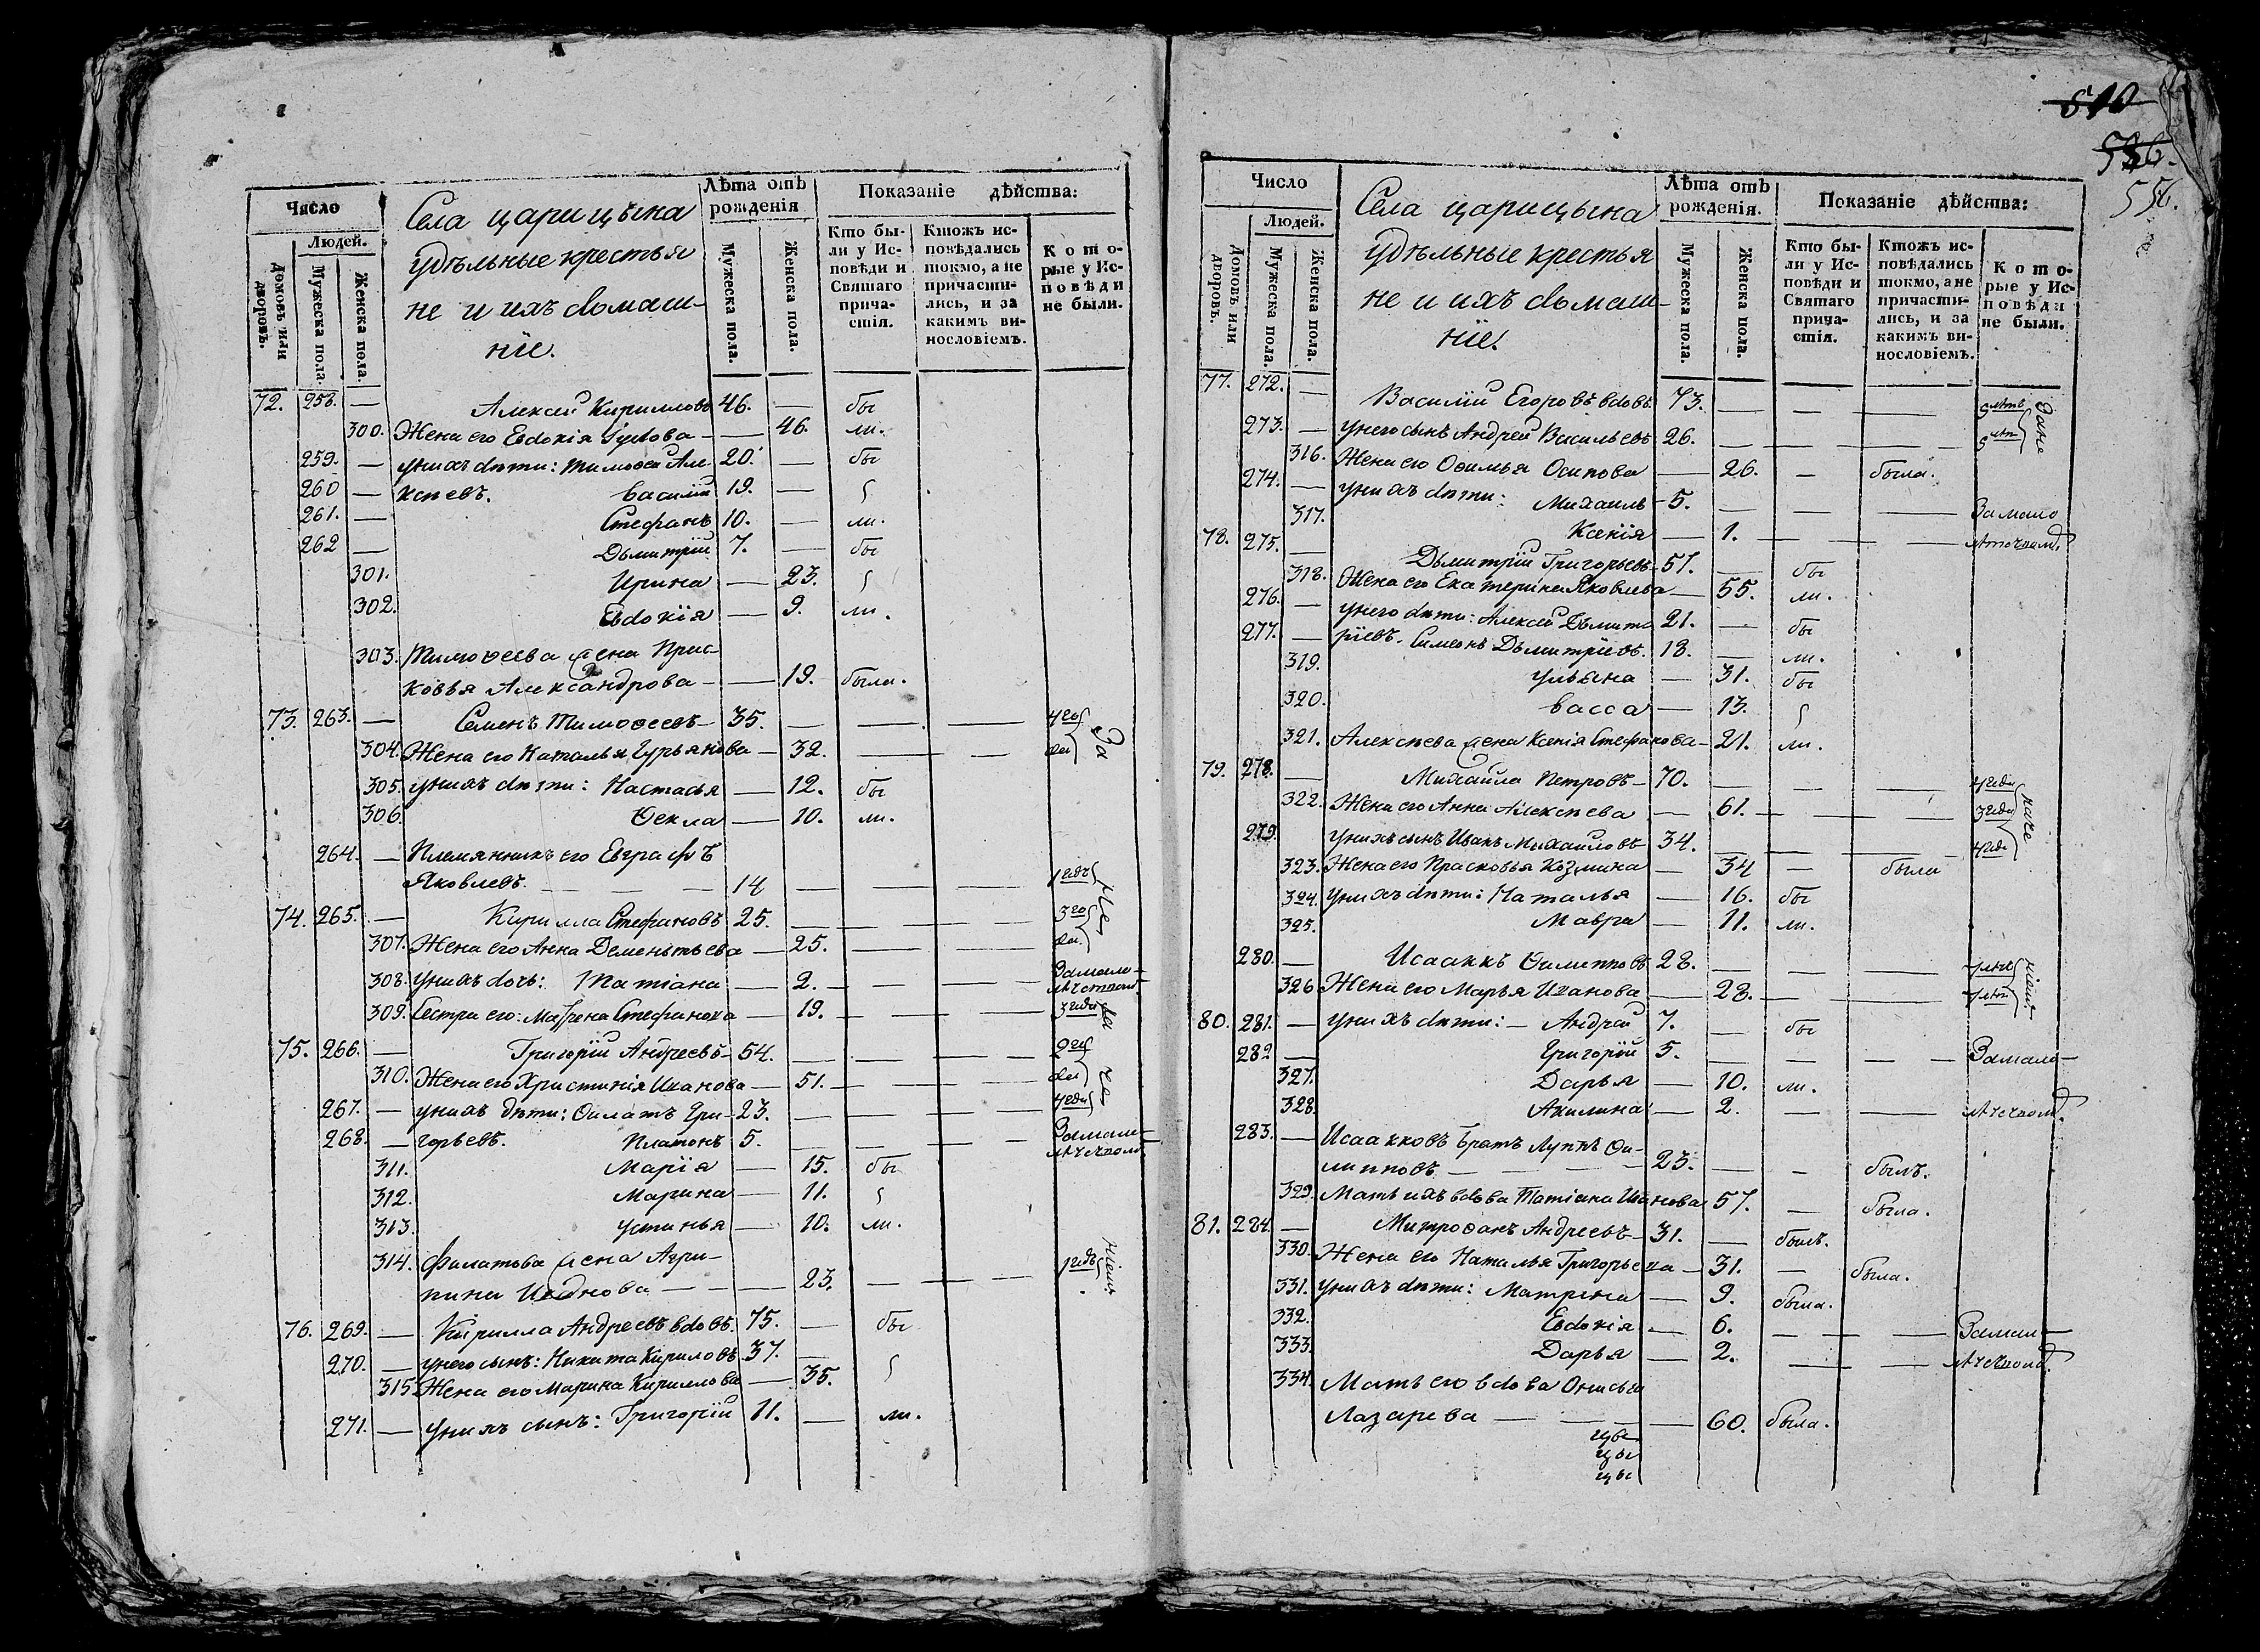 Число
Села царицына
Лѣта отъ рожденія
Показаніе дѣйства:
Людей.
удѣльные крестья
не и ихъ домаш-
ніе.
Домовъ или дворовъ.
Мужеска пола.
Женска пола.
Мужеска пола.
Женска пола.
Кто бы-
ли у Ис-
повѣди и
Святаго
прича-
стія.
Ктожъ ис-
повѣдались
токмо, а не
причасти-
лись, и за
какимъ ви-
нословіемъ.
Кото-
рые у Ис-
повѣди
не были.
72. 258. — Алексей Кирилловъ 46. — бы
300. Жена его Евдокія — 46. ли.
259. — у нихъ дѣти: Тимоѳей Але 20. — бы
260 — ксѣевъ. Василій 19. —
261. — Стефанъ 10. — ли.
262 — Дьмитрій 7. — бы
301. Ирина — 23.
302. Евдокія — 9. ли.
303. Тимоѳеева жена Прас-
ковья Александрова — — 19. была.
73. 263. — Семенъ Тимоѳеевъ — 35. — — — 4 го За
304. Жена его Наталья Гурьянова — 32. — — — да
305. у нихъ дѣти: Настасья — 12. бы
306. Ѳекла — 10. ли.
264. — Племянникъ его Евграфъ
Яковлевъ. — — — 14 — — — 1 годъ
74. 265. — Кирилла Стефановъ 25. — — — 3 го
307. Жена его Анна Дементьева — 25. — — — да.
308. у нихъ дочь: Татіана — 2. — — — Замало-
309. Сестра его: Матрена Стефанова — 19. — — — 3 года
75. 266. — Григорій Андреевъ — 54. — — — 2 го
310. Жена его Христинія Иванова — 51. — — — да
267. — у нихъ дѣти: Филатъ Гри- 23. — — — 4 года
268. — горьевъ. Платонъ 5. — — — Замало-
311. Марія — 15. бы
312. Марина — 11.
313. Устинья — 10. ли.
314. Филатова жена Агри-
пина — — — 23. — — 1 годъ ніемъ
76. 269. — Кирилла Андреевъ вдовъ. 75. — бы
270. — у него сынъ: Никита Кириловъ 37. —
315. Жена его Марина Кириллова — 35.
271. — у нихъ сынъ: Григорій 11. — ли.
510
536.
556.
Число
Села царицына
Лѣта отъ рожденія.
Показаніе дѣйства:
Людей.
удѣльные крестья
не и ихъ домаш-
ніе.
Домовъ или дворовъ.
Мужеска пола.
Женска пола.
Мужеска пола.
Женска пола.
Кто бы-
ли у Ис-
повѣди и
Святаго
прича-
стія.
Ктожъ ис-
повѣдались
токмо, а не
причасти-
лись, и за
какимъ ви-
нословіемъ.
Кото-
рые у Ис-
повѣди
не были.
77. 272. — Василій Егоровъ вдовъ. 73. — — — лѣтъ Зане
273. — у него сынъ Андрей Васильевъ 26. — — — лѣт
316. Жена его Ѳѳимья Осипова — 26. — была.
274. — у нихъ дѣти: Михаилъ — 5. — — — Замало
317. Ксенія — 1. — — —
78. 275. — Дьмитрій Григорьевъ 51. — бы
318. Жена его Екатерина Яковлева — 55. ли.
276. — у него дѣти: Алексей Дьмит 21. — бы
277. — ріевъ. Симеонъ Дьмитріевъ. 18. — ли.
319. Ульяна — 31. бы
320. Васса — 13.
321. Алексѣева жена Ксенія Стефанова — 21. ли.
79. 278. — Михайла Петровъ — 70. — — — 4 года
322. Жена его Анна Алексѣева — 61. — — — 3 года
279. у нихъ сынъ Иванъ Михайловъ 34. — — — 4 года
323. Жена его Прасковья Козмина — 34 — была
324. у нихъ дѣти: Наталья — 16. бы
325. Мавра — 11. ли.
280. — Исааккъ Филипповъ 28. — — — 7 лѣтъ ніем.
326. Жена его Марья Иванова — 28. — — — 7 лѣт.
80. 281. — у нихъ дѣти: — Андрей 7. — бы
282 — Григорій 5. — — — Замало-
327. Дарья — 10. ли.
328. Акилина — 2. — —
283. — Исаакковъ братъ Луппъ Фи-
липповъ. — — — 23. — — былъ.
329. Мать ихъ вдова Татіана Иванова 57. — была.
81. 284. — Митрофанъ Андреевъ — 31. — былъ.
330. Жена его Наталья Григорьева — 31. — была.
331. у нихъ дѣти: Матрена — 9. была.
332. Евдокія — 6. — — — Замало-
333. Дарья — 2. — —
334. Мать его вдова Онисья
Лазарева — — — 60. была.